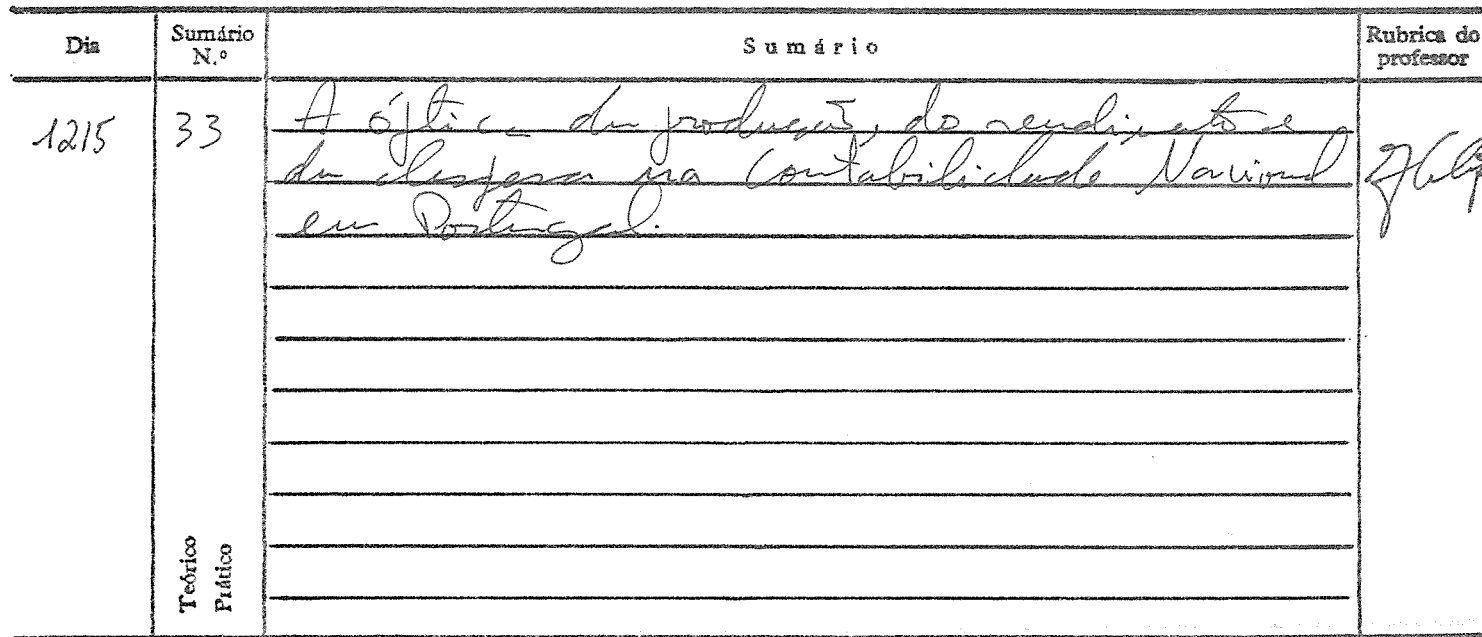 Dia
Sumário N.º
Sumário
Rubrica do professor
1215
33
A óptica da produção, do rendimento e
da despesa na Contabilidade Nacional
em Portugal.
Teórico
Prático